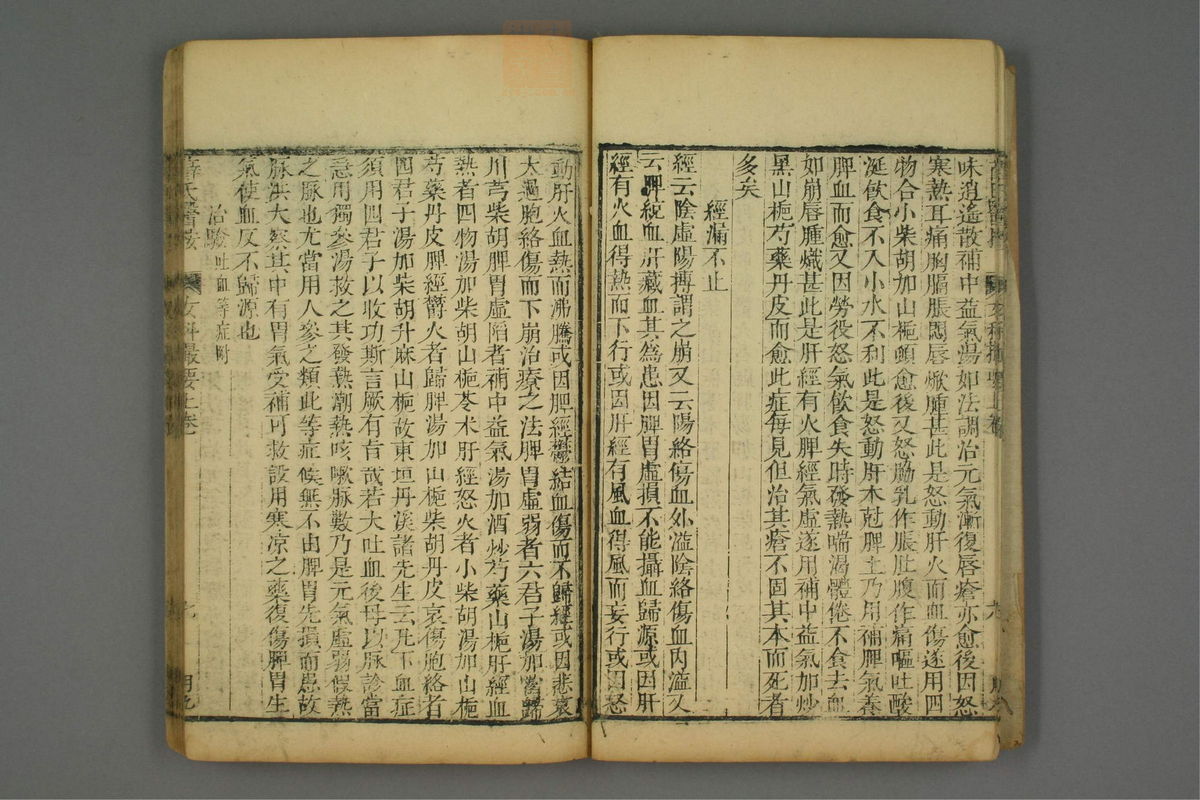 味逍遙散補中益氣湯如法調治元氣漸復唇瘡亦愈後因怒
寒熱耳痛胸膈脹悶唇焮腫甚此是怒動肝火而血傷遂用四
物合小柴胡加山梔頓愈後又怒脇乳作脹肚腹作痛嘔吐酸
涎飲食不入小水不利此是怒動肝木尅脾土乃用補脾氣養
脾血而愈又因勞役怒氣飲食失時發熱喘渴體倦不食去血
如崩唇腫熾甚此是肝經有火脾經氣虛遂用補中益氣加炒
黑山梔芍藥丹皮而愈此症每見但治其瘡不固其本而死者
多矣
經漏不止
經云陰虛陽搏謂之崩又云陽絡傷血外溢陰絡傷血內溢又
云脾統血肝藏血其為患因脾胃虛損不能攝血歸源或因肝
經有火血得熱而下行或因肝經有風血得風而妄行或因怒
動肝火血熱而沸騰或因脾經鬱結血傷而不歸經或因悲哀
太過胞絡傷而下崩治療之法脾胃虛弱者六君子湯加當歸
川芎柴胡脾胃虛陷者補中益氣湯加酒炒芍藥山梔肝經血
熱者四物湯加柴胡山梔苓朮肝經怒火者小柴胡湯加山梔
芍藥丹皮脾經鬱火者歸脾湯加山梔柴胡丹皮哀傷胞絡者
四君子湯加柴胡升麻山梔故東垣丹溪諸先生云凡下血症
須用四君子以收功斯言厥有旨哉若大吐血後毋以脉診當
急用獨參湯救之其發熱潮熱咳嗽脉數乃是元氣虛弱假熱
之脉也尤當用人參之類此等症候無不由脾胃先損而患故
脉洪大察其中有胃氣受補可救設用寒凉之藥復傷脾胃生
氣使血反不歸源也
治驗吐血等症附
薛氏醫按 女科撮要上卷